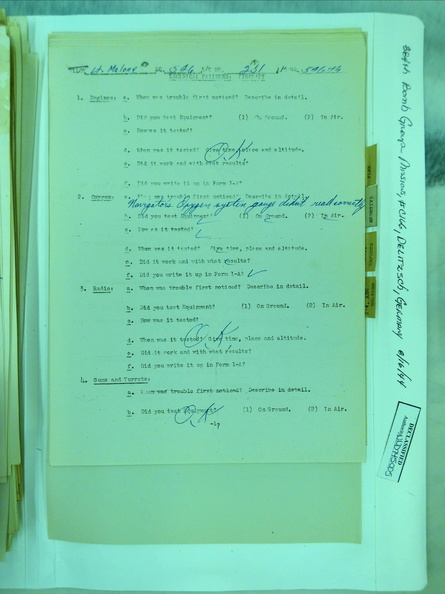 Lt. Maloney 546 231 546th
1. Engines: a. When was trouble first noticed? Describe in detail.
b. Did you test Equipment? (1) On Ground. (2) In Air.
c. How was it tested?
d. When was it tested? Give time, place and altitude.
O.K.
e. Did it work and with what results?
f. Did you write it up in Form 1-A?
2. Oxygen: a. When was trouble first noticed? Describe in detail.
Navigators Oxygen system gauge didnt read correctly
b. Did you test Equipment? (1) On Ground. (2) In Air.
c. How was it tested?
d. When was it tested? Give time, place and altitude.
e. Did it work and with what results?
f. Did you write it up in Form 1-A?
3. Radio: a. When was trouble first noticed? Describe in detail.
b. Did you test Equipment? (1) On Ground. (2) In Air.
c. How was it tested?
d. When was it tested? Give time, place and altitude.
O.K.
e. Did it work and with what results?
f. Did you write it up in Form 1-A?
4. Guns and Turrets:
a. When was trouble first noticed? Describe in detail.
b. Did you test Equipment? (1) On Ground. (2) In Air.
O.K.
384th Bomb Group Mission, #C166, Delitzsch, Germany 8/16/44
DECLASSIFIED